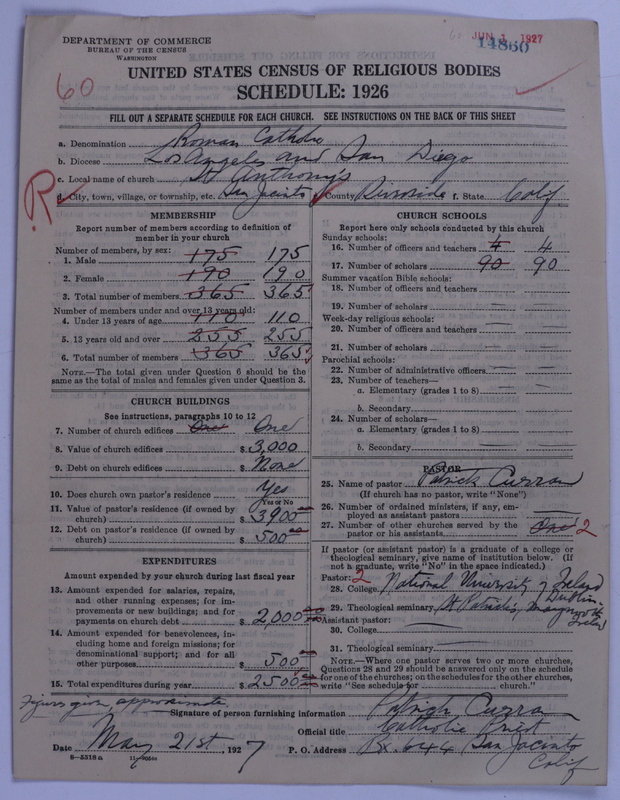 DEPARTMENT OF COMMERCE
BUREAU OF THE CENSUS
WASHINGTON
JUN 1 1927
14860
60
UNITED STATES CENSUS OF RELIGIOUS BODIES
SCHEDULE: 1926
FILL OUT A SEPARATE SCHEDULE FOR EACH CHURCH. SEE INSTRUCTIONS ON THE BACK OF THIS SHEET
a. Denomination Roman Catholic
b. Diocese Los Angeles and San Diego
c. Local name of church St Anthony's
R
d. City, town, village, or township, etc. San Jacinto e. County Riverside f. State Calif
MEMBERSHIP
Report number of members according to definition of member in your church
Number of members, by sex:
1. Male 175 175
2. Female 190 190
3. Total number of members 365 365
Number of members under and over 13 years old:
4. Under 13 years of age 110 110
5. 13 years old and over 255 255
6. Total number of members 365 365
NOTE.—The total given under Question 6 should be the
same as the total of males and females given under Question 3.
CHURCH BUILDINGS
See instructions, paragraphs 10 to 12
7. Number of church edifices One One
8. Value of church edifices $ 3,000
9. Debt on church edifices $ None
10. Does church own pastor's residence Yes
Yes or No
11. Value of pastor's residence (if owned by
church) $ 3900.00
12. Debt on pastor's residence (if owned by
church) $ 500.00
EXPENDITURES
Amount expended by your church during last fiscal year
13. Amount expended for salaries, repairs,
and other running expenses; for im-
provements or new buildings; and for
payments on church debt $ 2,000
14. Amount expended for benevolences, in-
cluding home and foreign missions; for
denominational support; and for all
other purposes $ 500
15. Total expenditures during year $ 2500
CHURCH SCHOOLS
Report here only schools conducted by this church
Sunday schools:
16. Number of officers and teachers 4 4
17. Number of scholars 90 90
Summer vacation Bible schools:
18. Number of officers and teachers
19. Number of scholars —
Week-day religious schools:
20. Number of officers and teachers —
21. Number of scholars —
Parochial schools:
22. Number of administrative officers —
23. Number of teachers—
a. Elementary (grades 1 to 8) —
b. Secondary
24. Number of scholars—
a. Elementary (grades 1 to 8) —
b. Secondary —
PASTOR
25. Name of pastor Patrick Curran
(If church has no pastor, write "None")
26. Number of ordained ministers, if any, em-
ployed as assistant pastors —
27. Number of other churches served by the
pastor or his assistants One 2
If pastor (or assistant pastor) is a graduate of a college or
theological seminary, give name of institution below. (If
not a graduate, write "No" in the space indicated.)
Pastor: 2
28. College National University of Ireland Dublin
29. Theological seminary St Patrick's, Maynooth Ireland
Assistant pastor:
30. College
31. Theological seminary
NOTE.—Where one pastor serves two or more churches,
Questions 28 and 29 should be answered only on the schedule
for one of the churches; on the schedules for the other churches,
write "See schedule for church."
Figures given, approximate
Signature of person furnishing information Patrick Curran
Official title Catholic Priest
Date May 21st, 1927 P. O. Address Bx. 644 San Jacinto
Calif
8—5518a